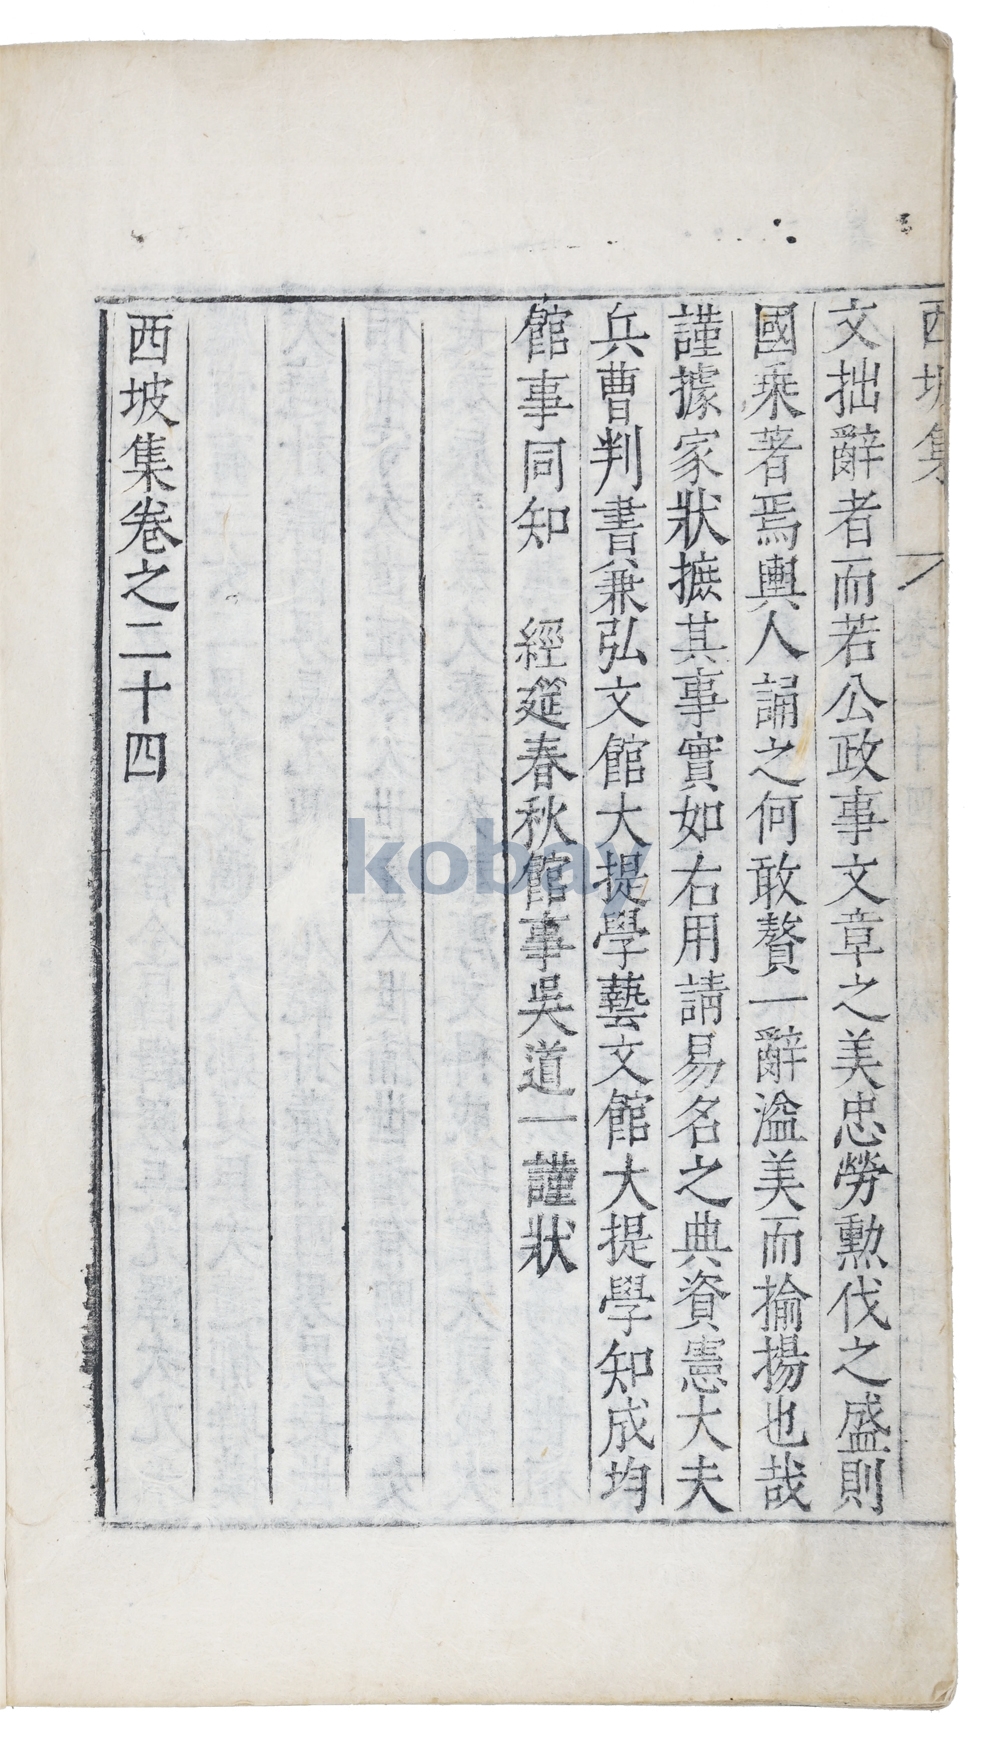 西坡集
文拙辭者而若公政事文章之美忠勞勳伐之盛則
國乘著焉輿人誦之何敢贅一辭溢美而揄揚也哉
謹據家狀摭其事實如右用請易名之典資憲大夫
兵曹判書兼弘文館大提學藝文館大提學知成均
館事同知　經筵春秋館事吳道一謹狀
西坡集卷之二十四
kobay